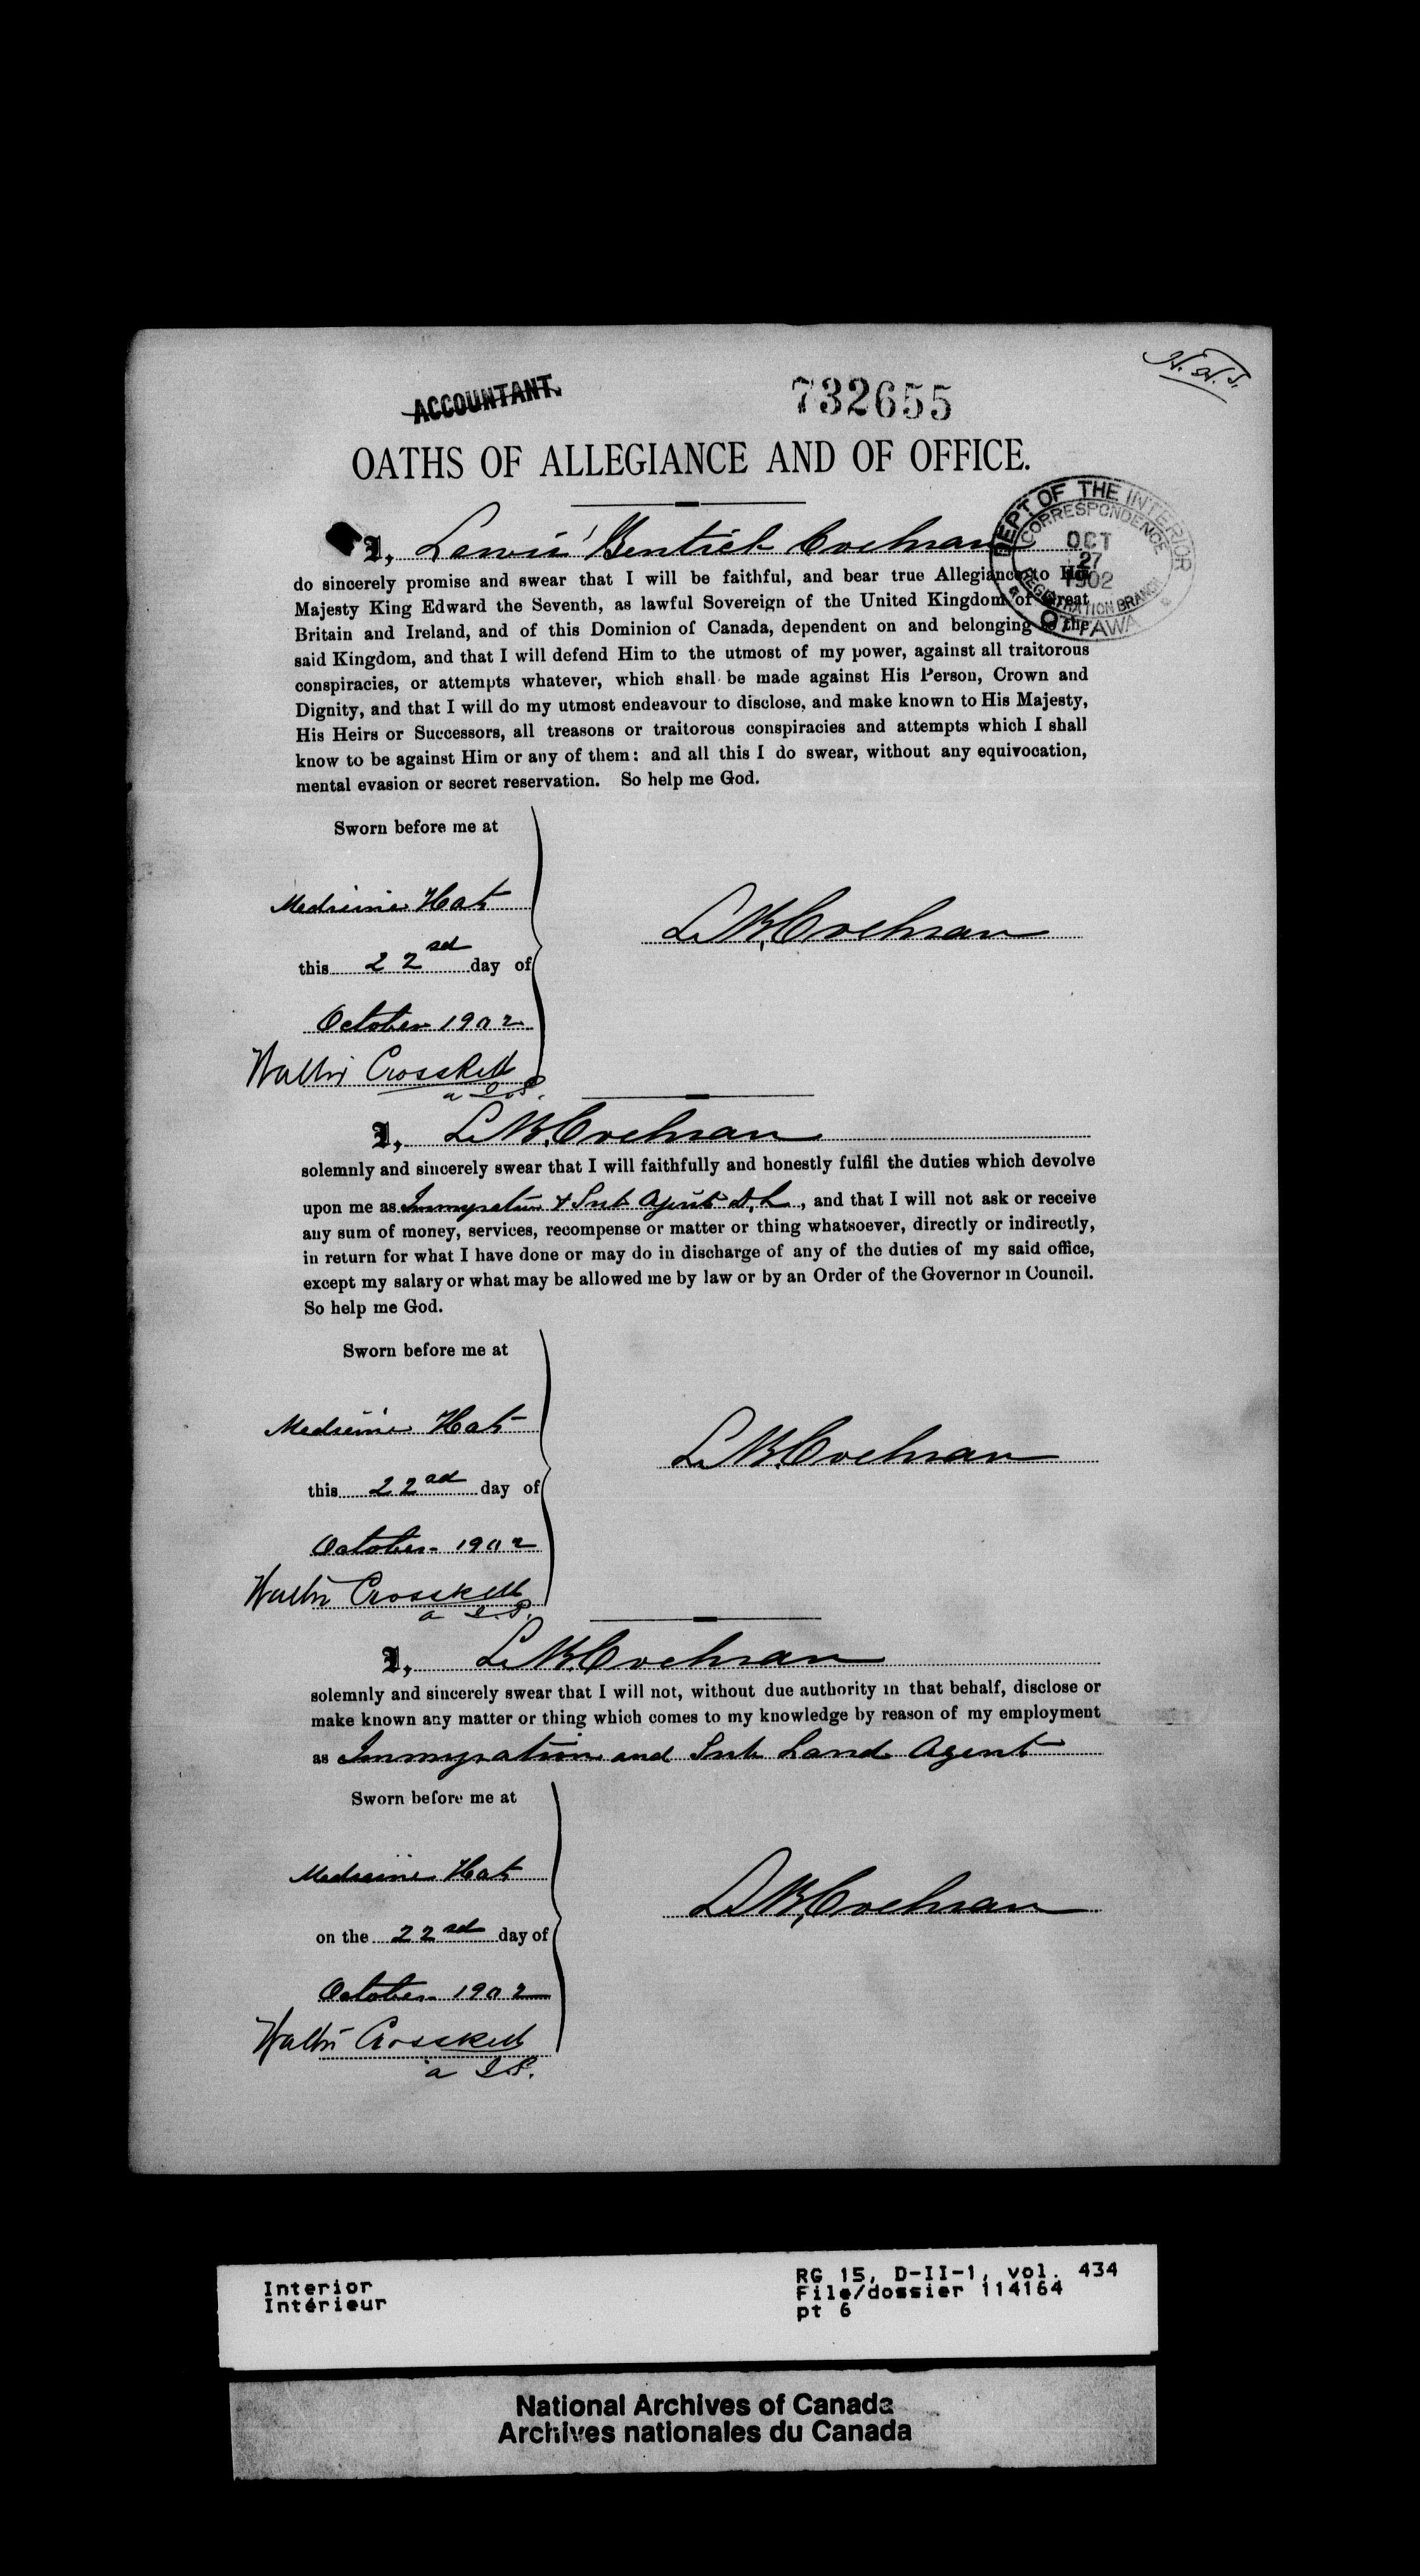 N.W.T.
ACCOUNTANT.
732655
OATHS OF ALLEGIANCE AND OF OFFICE.
DEPT OF THE INTERIOR
CORRESPONDENCE
OCT
27
1902
REGISTRATION BRANCH
OTTAWA
I, Lewis Cochran
do sincerely promise and swear that I will be faithful, and bear true Allegiance to His
Majesty King Edward the Seventh, as lawful Sovereign of the United Kingdom of Great
Britain and Ireland, and of this Dominion of Canada, dependent on and belonging to the
said Kingdom, and that I will defend Him to the utmost of my power, against all traitorous
conspiracies, or attempts whatever, which shall be made against His Person, Crown and
Dignity, and that I will do my utmost endeavour to disclose, and make known to His Majesty,
His Heirs or Successors, all treasons or traitorous conspiracies and attempts which I shall
know to be against Him or any of them: and all this I do swear, without any equivocation,
mental evasion or secret reservation. So help me God.
Sworn before me at
Medicine Hat
this 22nd day of
October 1902
Cochran
Walter Crosskill
a J.P.
I, Cochran
solemnly and sincerely swear that I will faithfully and honestly fulfil the duties which devolve
upon me as Immigration & Sub Agent D.L., and that I will not ask or receive
any sum of money, services, recompense or matter or thing whatsoever, directly or indirectly,
in return for what I have done or may do in discharge of any of the duties of my said office,
except my salary or what may be allowed me by law or by an Order of the Governor in Council.
So help me God.
Sworn before me at
Medicine Hat
this 22nd day of
October 1902
Cochran
Walter Crosskill
a J.P.
I, Cochran
solemnly and sincerely swear that I will not, without due authority in that behalf, disclose or
make known any matter or thing which comes to my knowledge by reason of my employment
as Immigration and Sub Land Agent
Sworn before me at
Medicine Hat
on the 22nd day of
October 1902
Cochran
Walter Crosskill
a J.P.
Interior
Intérieur
RG 15, D-II-1, vol. 434
File/dossier 114164
pt 6
National Archives of Canada
Archives nationales du Canada